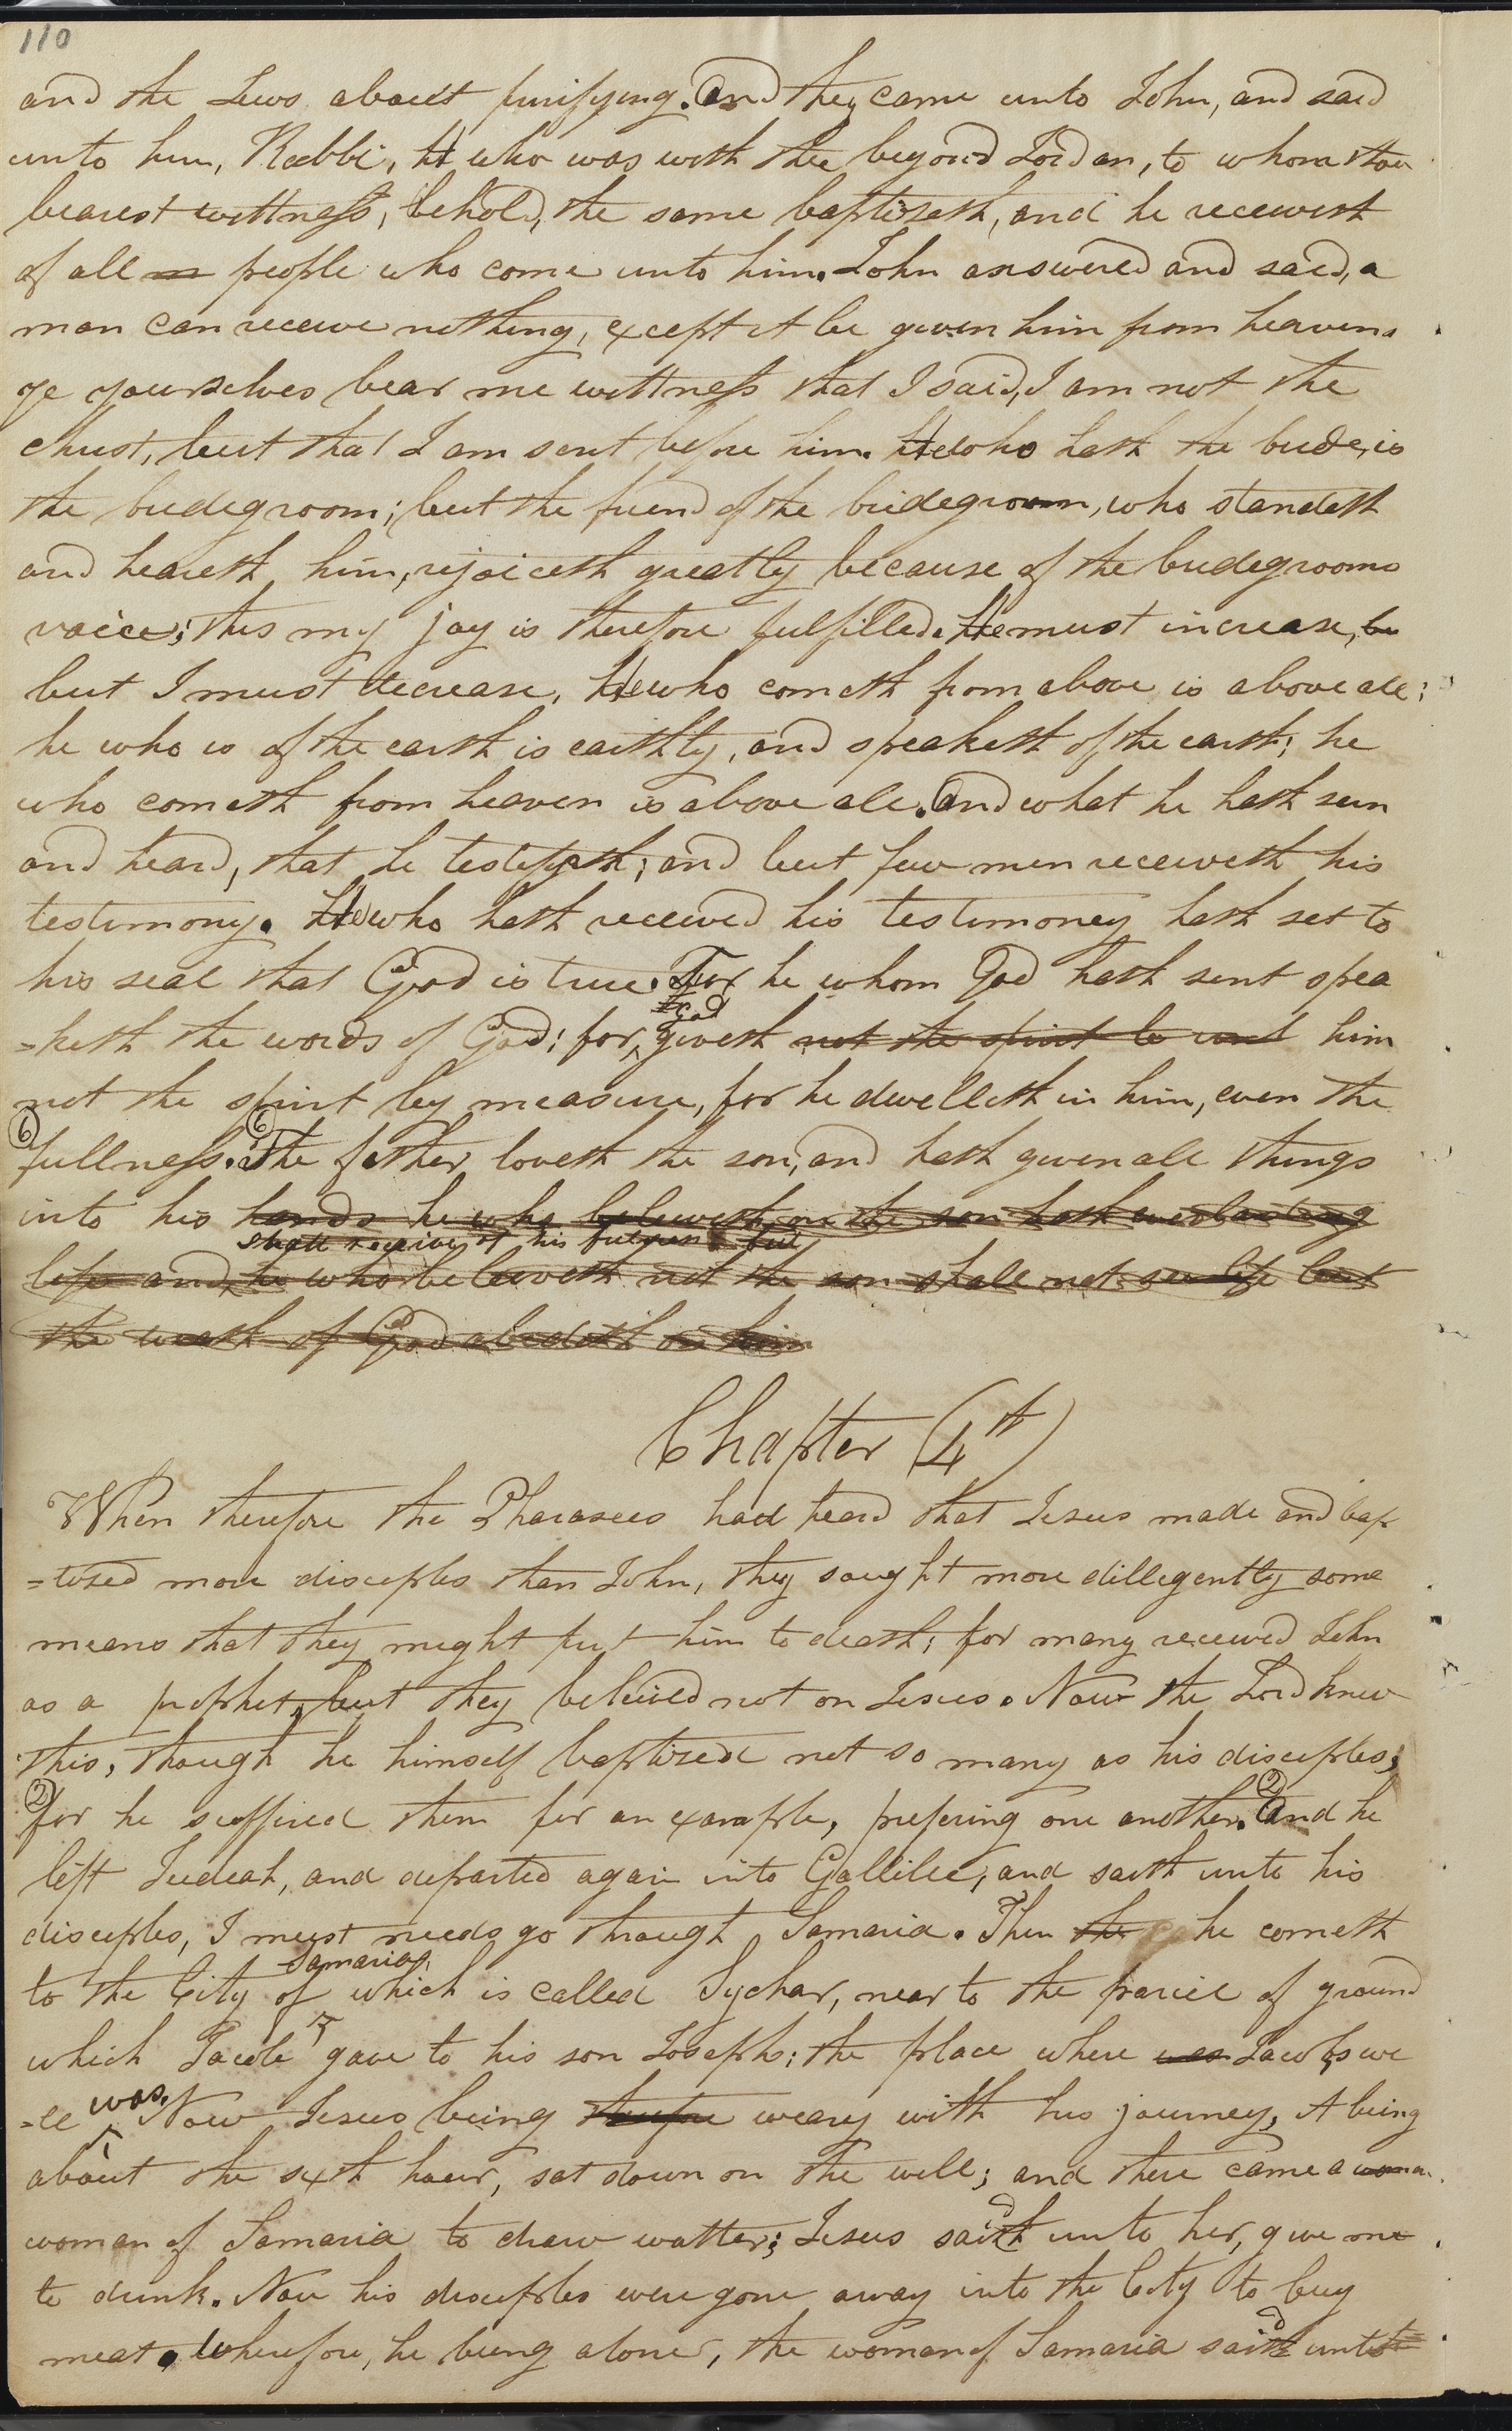 110
and the Jews about purifying. And they came unto John, and said
unto him, Rabbi, He who was with thee beyond Jordan, to whom thou
bearest wittness, behold, the same baptizeth, and he receiveth
of all people who come unto him. John answered and said, a
man can receive nothing, except it be given him from heaven.
ye yourselves bear me wittness that I said, I am not the
Christ, but that I am sent before him. He who hath the bride, is
the bridegroom; but the friend of the bridegroom, who standeth
and heareth him, rejoiceth greatly because of the bridegrooms
voice; this my joy is therefore fulfilled. He must increase, be
but I must decrease, He who cometh from above is above all;
he who is of the earth is earthly, and speaketh of the earth; he
who cometh from heaven is above all. And what he hath seen
and heard, that he testifyeth; and but few men receiveth his
testimony. He who hath received his testimoney hath set to
his seal that God is true. For he whom God hath sent spea
God
=keth the words of God; for, giveth not the spirit to unt him
not the spirit by measure, for he dwelleth in him, even the
6 6
fullness. The father loveth the son, and hath given all things
into his hands he who believeth on the son hath everlasting
shall receive of his fulness but
life and he who believeth not the son shall not see life but
the wrath of God abideth on him
Chapter (4th)
When therefore the Pharasees had heard that Jesus made and bap
=tized more disciples than John, they saught more dillegently some
means that they might put him to death; for many received John
as a prophet, but they beleived not on Jesus. Now the Lord knew
this, though he himself baptized not so many as his disciples;
2 2
for he suffired them for an example, prefering one another. And he
left Judeah, and departed again into Gallilee, and saith unto his
disciples, I must needs go through Samaria. Then the he cometh
Samaria,
to the City of which is called Sychar, near to the parcel of ground
which Jacob gave to his son Joseph; the place where was Jacobs we
=ll was. Now Jesus being therefore weary with his journey, it being
about the sixth hour, sat down on the well; and there came a woman
woman of Samaria to draw watter; Jesus saith d unto her, give me
to drink. Now his disciples were gone away into the City to buy
meat. Wherefore, he being alone, the woman of Samaria saith d unto